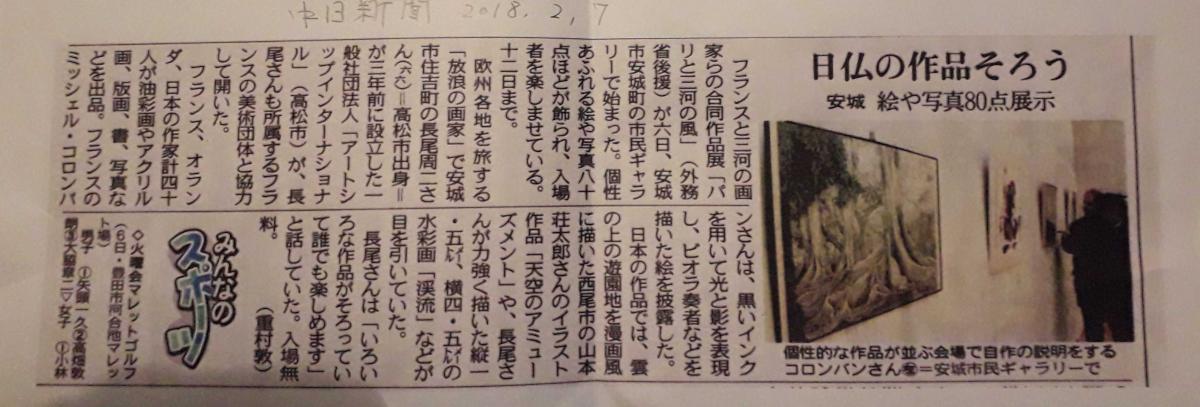 中日新聞 2018.2.7
日仏の作品そろう
安城 絵や写真80点展示
フランスと三河の画
家らの合同作品展「パ
リと三河の風」(外務
省後援)が六日、安城
市安城町の市民ギャラ
リーで始まった。個性
あふれる絵や写真八十
点ほどが飾られ、入場
者を楽しませている。
十二日まで。
欧州各地を旅する
「放浪の画家」で安城
市住吉町の長尾周二さ
ん(六八)=高松市出身=
が三年前に設立した一
般社団法人「アートシ
ップインターナショナ
ル」(高松市)が、長
尾さんも所属するフラ
ンスの美術団体と協力
して開いた。
フランス、オラン
ダ、日本の作家計四十
人が油彩画やアクリル
画、版画、書、写真な
どを出品。フランスの
ミッシェル・コロンバ
ンさんは、黒いインク
を用いて光と影を表現
し、ビオラ奏者などを
描いた絵を披露した。
日本の作品では、雲
の上の遊園地を漫画風
に描いた西尾市の山本
荘太郎さんのイラスト
作品「天空のアミュー
ズメント」や、長尾さ
んが力強く描いた縦一
・五㍍、横四・五㍍の
水彩画「渓流」などが
目を引いていた。
長尾さんは「いろい
ろな作品がそろってい
て誰でも楽しめます」
と話していた。入場無
料。
(重村敦)
個性的な作品が並ぶ会場で自作の説明をする
コロンバンさん㊨=安城市民ギャラリーで
みんなの
スポーツ
◇火曜会マレットゴルフ
(6日・豊田市河合池マレッ
ト場)
男子 ①矢頭一久②高畑敦
朗③大脇章二▽女子 ①小林